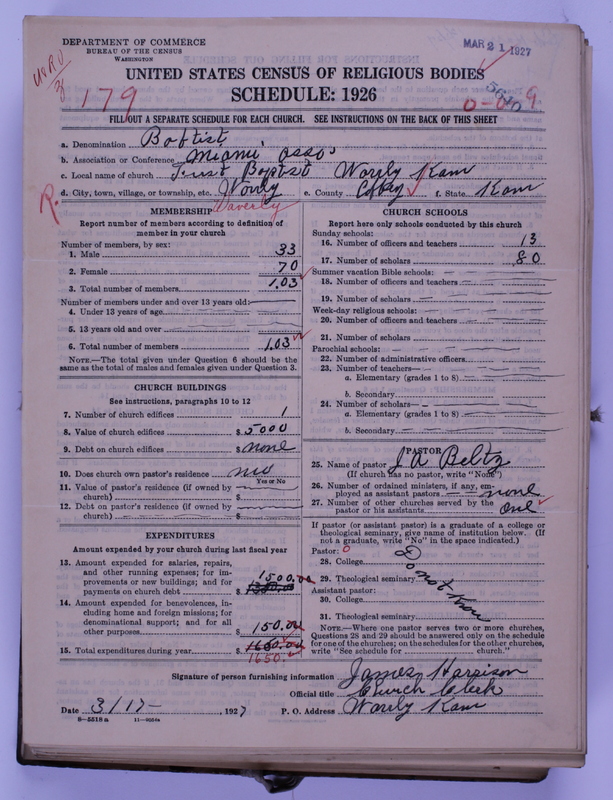 DEPARTMENT OF COMMERCE
BUREAU OF THE CENSUS
WASHINGTON
MAR 21 1927
UNITED STATES CENSUS OF RELIGIOUS BODIES
SCHEDULE: 1926
179
FILL OUT A SEPARATE SCHEDULE FOR EACH CHURCH. SEE INSTRUCTIONS ON THE BACK OF THIS SHEET
a. Denomination Baptist
b. Association or Conference Miami Asso
c. Local name of church First Baptist Kans
d. City, town, village, or township, etc. e. County f. State Kans
Waverly
R.
MEMBERSHIP
Report number of members according to definition of member in your church
Number of members, by sex:
1. Male 33
2. Female 70
3. Total number of members 1,03
Number of members under and over 13 years old:
4. Under 13 years of age
5. 13 years old and over
6. Total number of members 1,03
NOTE.—The total given under Question 6 should be the
same as the total of males and females given under Question 3.
CHURCH BUILDINGS
See instructions, paragraphs 10 to 12
7. Number of church edifices 1
8. Value of church edifices $5000
9. Debt on church edifices $none
10. Does church own pastor's residence no
Yes or No
11. Value of pastor's residence (if owned by
church) $
12. Debt on pastor's residence (if owned by
church) $
EXPENDITURES
Amount expended by your church during last fiscal year
13. Amount expended for salaries, repairs,
and other running expenses; for im-
provements or new buildings; and for
payments on church debt $ 1500.00
14. Amount expended for benevolences, in-
cluding home and foreign missions; for
denominational support; and for all
other purposes 150.00
15. Total expenditures during year $1650.00
1650.
CHURCH SCHOOLS
Report here only schools conducted by this church
Sunday schools:
16. Number of officers and teachers 13
17. Number of scholars 80
Summer vacation Bible schools:
18. Number of officers and teachers
19. Number of scholars
Week-day religious schools:
20. Number of officers and teachers
21. Number of scholars
Parochial schools:
22. Number of administrative officers
23. Number of teachers—
a. Elementary (grades 1 to 8)
b. Secondary
24. Number of scholars—
a. Elementary (grades 1 to 8)
b. Secondary
PASTOR
25. Name of pastor J A Beltz
(If church has no pastor, write "None")
26. Number of ordained ministers, if any, em-
ployed as assistant pastors none
27. Number of other churches served by the
pastor or his assistants one
If pastor (or assistant pastor) is a graduate of a college or
theological seminary, give name of institution below. (If
not a graduate, write "No" in the space indicated.)
Pastor: 0
28. College
Do not know
29. Theological seminary
Assistant pastor:
30. College
31. Theological seminary
NOTE.—Where one pastor serves two or more churches,
Questions 28 and 29 should be answered only on the schedule
for one of the churches; on the schedules for the other churches,
write "See schedule for church."
Signature of person furnishing information James Harrison
Official title Church Clerk
Date 3/17-, 1927 P. O. Address Kans
8—5518 a